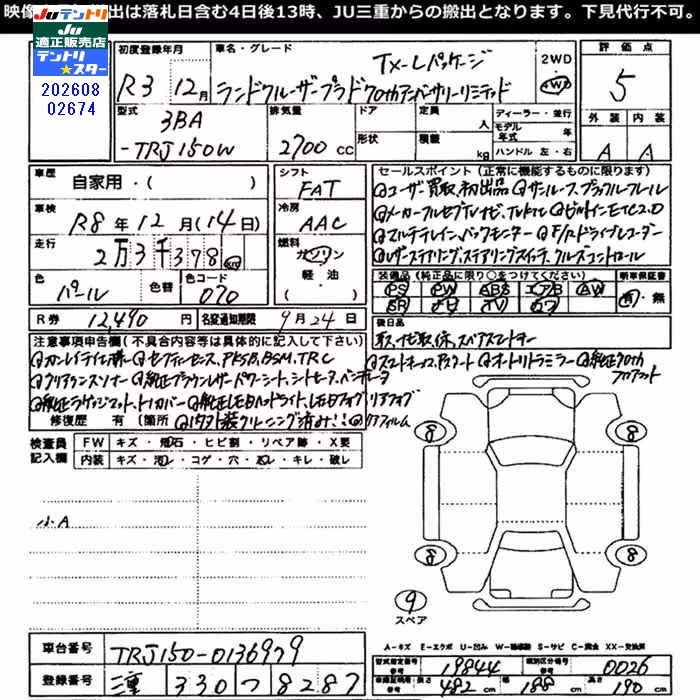 映像 出は落札日含む4日後13時、JU三重からの搬出となります。下見代行不可。
JUテントリ
適正販売店
テントリ★スター
202608
02674
初度登録年月 車名・グレード 2WD 評価点
R3 12月 TX-Lパッケージ 4WD 5
ランドクルーザープラド70thアンバサリーリミテッド
型式 排気量 ドア 定員 人 ディーラー・並行 外装 内装
3BA 形状 積載 kg モデル年式 年
-TRJ150W 2700 CC ハンドル 左・右 A A
車歴 シフト セールスポイント(正常に機能するものに限ります)
自家用・( ) FAT ユーザー買取、初出品 サンルーフ、ブラックルーフレール
車検 R8年12月(14日) 冷房 AAC メーカーフルセグTVナビ、ブルートゥース ビルトインETC2.0
走行 2万3千378 km 燃料 マルチテレイン、バックモニター F/Rドライブレコーダー
ガソリン レザーステアリング、ステアリングスイッチ、クルーズコントロール
色 色替 色コード 軽・油 装備品(純正品に限り○をつけてください) 新車保証書
パール 070 ( ) PS PW ABS エアB AW 有・無
SR ナビ TV カワ
R券 12,490円 名変通知期限 9月24日 後日品
注意事項申告欄(不具合内容等は具体的に記入して下さい)
セーフティセンス、PKSB、BSM、TRC スマートキー×2、Pスタート オートリトラミラー 純正70th
クリアランスソナー 純正ブラウンレザーパワーシート、シートヒータ、ベンチレータ フロアマット
純正ラゲッジマット、トノカバー 純正LEDヘッドライト、LEDフォグ、リアフォグ
修復歴 有(箇所 内外装クリーニング済み!! リアフィルム
検査員記入欄 FW キズ・飛石・ヒビ割・リペア跡・X要
内装 キズ・汚レ・コゲ・穴・スレ・キレ・破レ
小A
8
8
8
8
9
スペア
A-キズ E-エクボ U-凹み W-補修跡 S-サビ C-腐食 XX-交換済
車台番号 TRJ150-0136979 型式指定番号 参考 19844 類別区分番号 参考 0026
登録番号 三重 330 つ 8287 長さ 参考 482 cm 幅 参考 188 cm 高さ 参考 190 cm